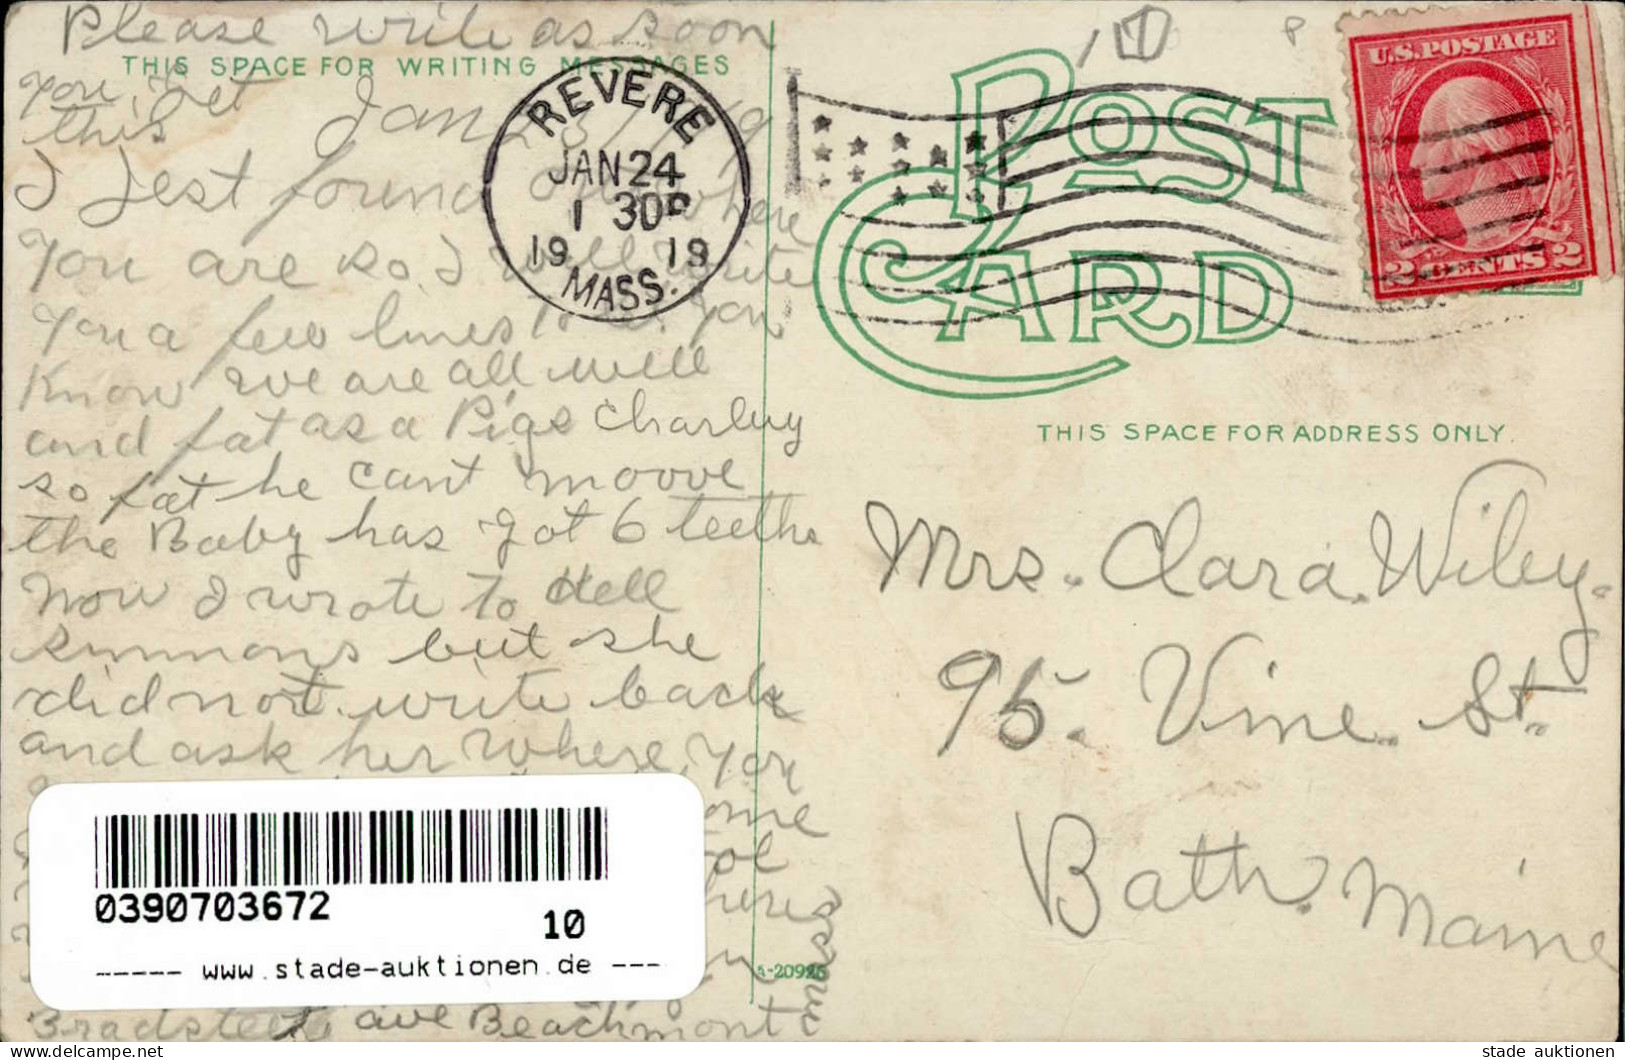 Please write as soon
THIS SPACE FOR WRITING MESSAGES
you get
this Jan 23/19
I Jest found out where
You are so I will write
You a few lines to let You
Know we are all well
and fat as a Pigs Charley
so fat he cant moove
the Baby has got 6 teeths
now I wrote to dell
simmons but she
did not write back
and ask her where You
ome
ool
heres
Bradsteete ave Beachmont
REVERE
JAN 24
1 30P
19 19
MASS.
POST
CARD
U.S. POSTAGE
2 CENTS 2
THIS SPACE FOR ADDRESS ONLY.
Mrs. Clara. Wiley.
95. Vine. St.
Bath. Maine
0390703672
10
----- www.stade-auktionen.de ---
A-20925
www.delcampe.net
stade auktionen